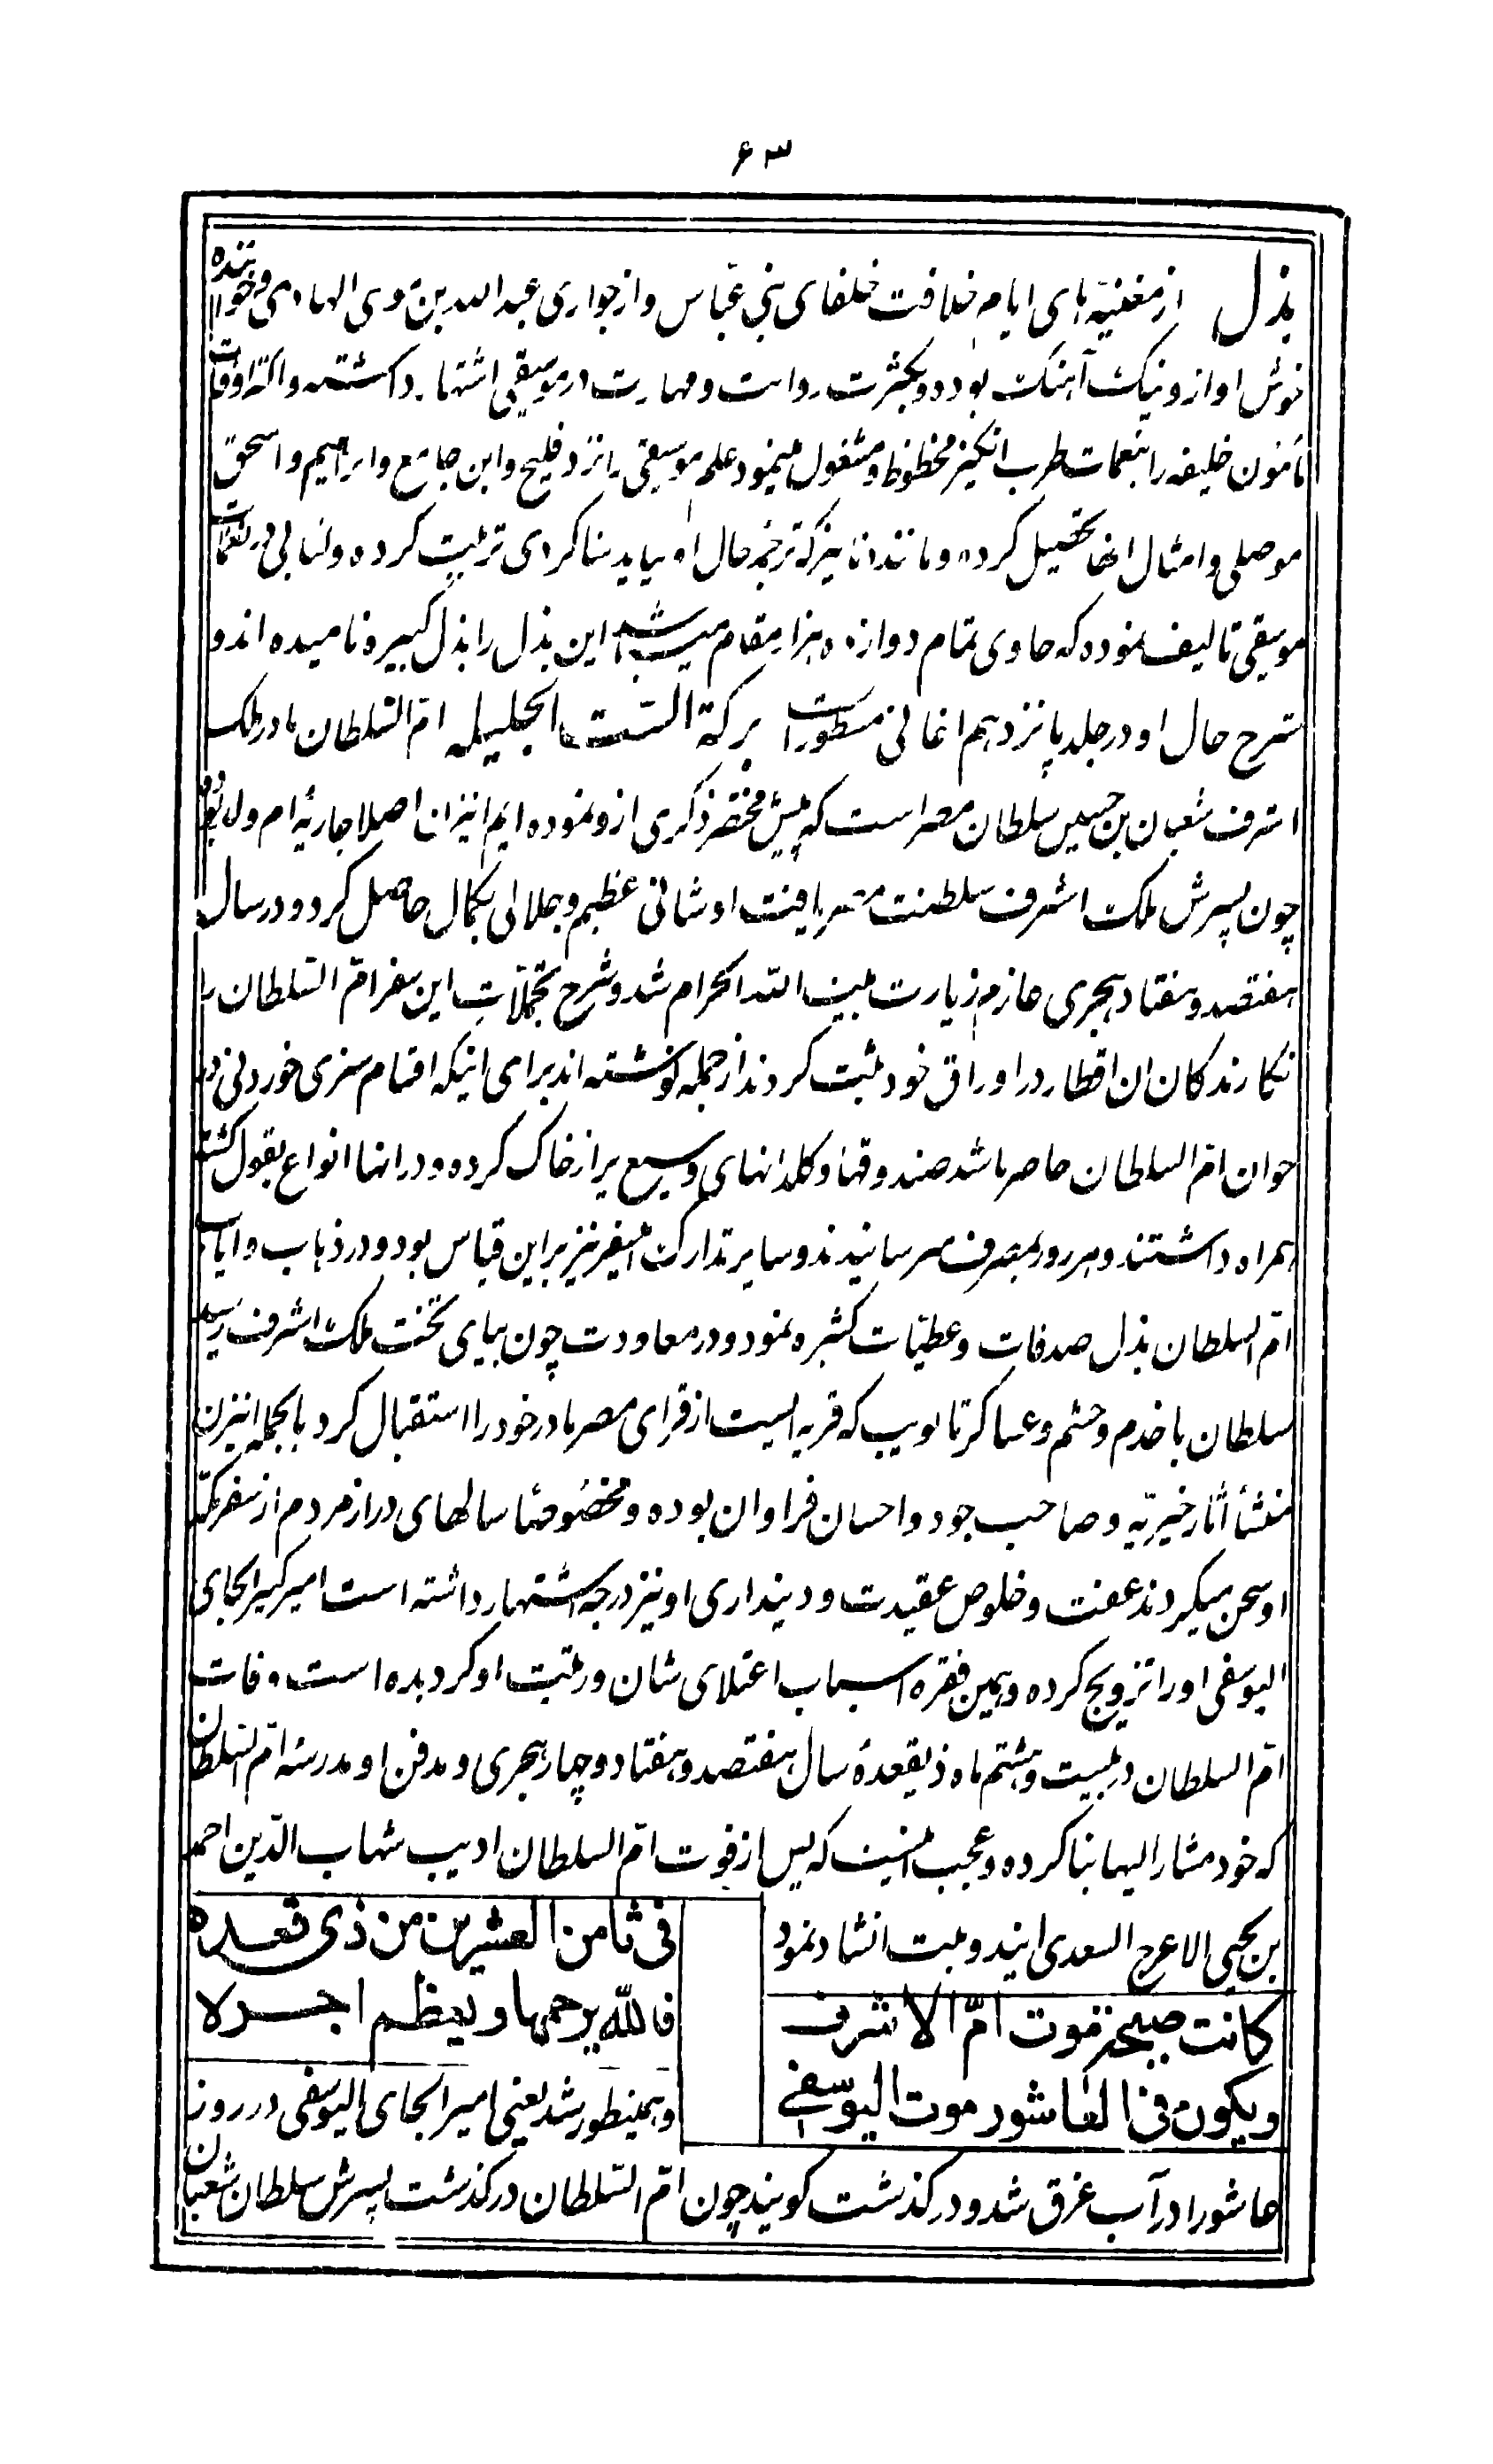 ۶۳
بذل از مغنیه‌های ایام خلافت خلفای بنی عباس و از جواری عبدالله بن موسی الهادی و خواننده
خوش اواز و نیک آهنگ بوده و بکثرت روایت و مهارت در موسیقی اشتهار داشته و اکثر اوقات
مأمون خلیفه را بنغمات طرب انگیز محظوظ و مشغول مینمود علم موسیقی را نزد فلیح و ابن جامع و ابراهیم و اسحق
موصلی و امثال انها تحصیل کرده و مانند دنانیر که ترجمه حال او بیاید شاکردی تربیت کرده و کتابی در نغمات
موسیقی تالیف نموده که حاوی تمام دوازده هزار مقام میباشد این بذل را بذل کبیره نامیده اند و
شرح حال او در جلد پانزدهم اغانی مسطور است برکة الست الجلیله ام السلطان مادر ملک
اشرف شعبان بن حسین سلطان مصر است که پیش مختصر ذکری از و نموده ایم اینزن اصلا جاریهٔ ام ولد بود
چون پسرش ملک اشرف سلطنت مصر یافت او شانی عظیم و جلالی بکمال حاصل کرد و در سال
هفتصد و هفتاد هجری عازم زیارت بیت الله الحرام شد و شرح تجملات این سفر ام السلطان را
نکارندکان ان اقطار در اوراق خود ثبت کردند از جمله نوشته اند برای اینکه اقسام سبزی خوردنی در
خوان ام السلطان حاضر باشد صندوقها و کلدانهای وسیع پر از خاک کرده و در انها انواع بقول کشته
همراه داشتند و هر روز بمصرف میرسانیدند و سایر تدارکات اینسفر نیز براین قیاس بود و در ذهاب و ایاب
ام السلطان بذل صدقات و عطیات کثیره نمود و در معاودت چون بپای تخت ملک اشرف رسید
سلطان با خدم و حشم و عساکر تا بویب که قریه ایست از قرای مصر مادر خود را استقبال کرد بالجمله اینزن
منشأ آثار خیریه و صاحب جود و احسان فراوان بوده و مخصوصا سالهای دراز مردم از سفر مکه
او سخن میکردند عفت و خلوص عقیدت و دینداری او نیز درجه اشتهار داشته است امیرکبیر الجای
الیوسفی او را تزویج کرده و همین فقره اسباب اعتلای شان و رتبت او کردیده است وفات
ام السلطان در بیست و هشتم ماه ذیقعدهٔ سال هفتصد و هفتاد و چهار هجری و مدفن او مدرسه ام السلطان
که خود مشارالیها بنا کرده و عجب اینست که پس از فوت ام السلطان ادیب شهاب الدین احمد
بن یحیی الاعرج السعدی ایندو بیت انشاد نمود
فی ثامن العشرین من ذی قعده
کانت صبیحة موت ام الاشرف
فالله یرحمها و یعظم اجره
و یکون فی العاشور موت الیوسفی
و همینطور شد یعنی امیر الجای الیوسفی در روز
عاشورا در آب غرق شد و درکذشت کویند چون ام السلطان درکذشت پسرش سلطان شعبان